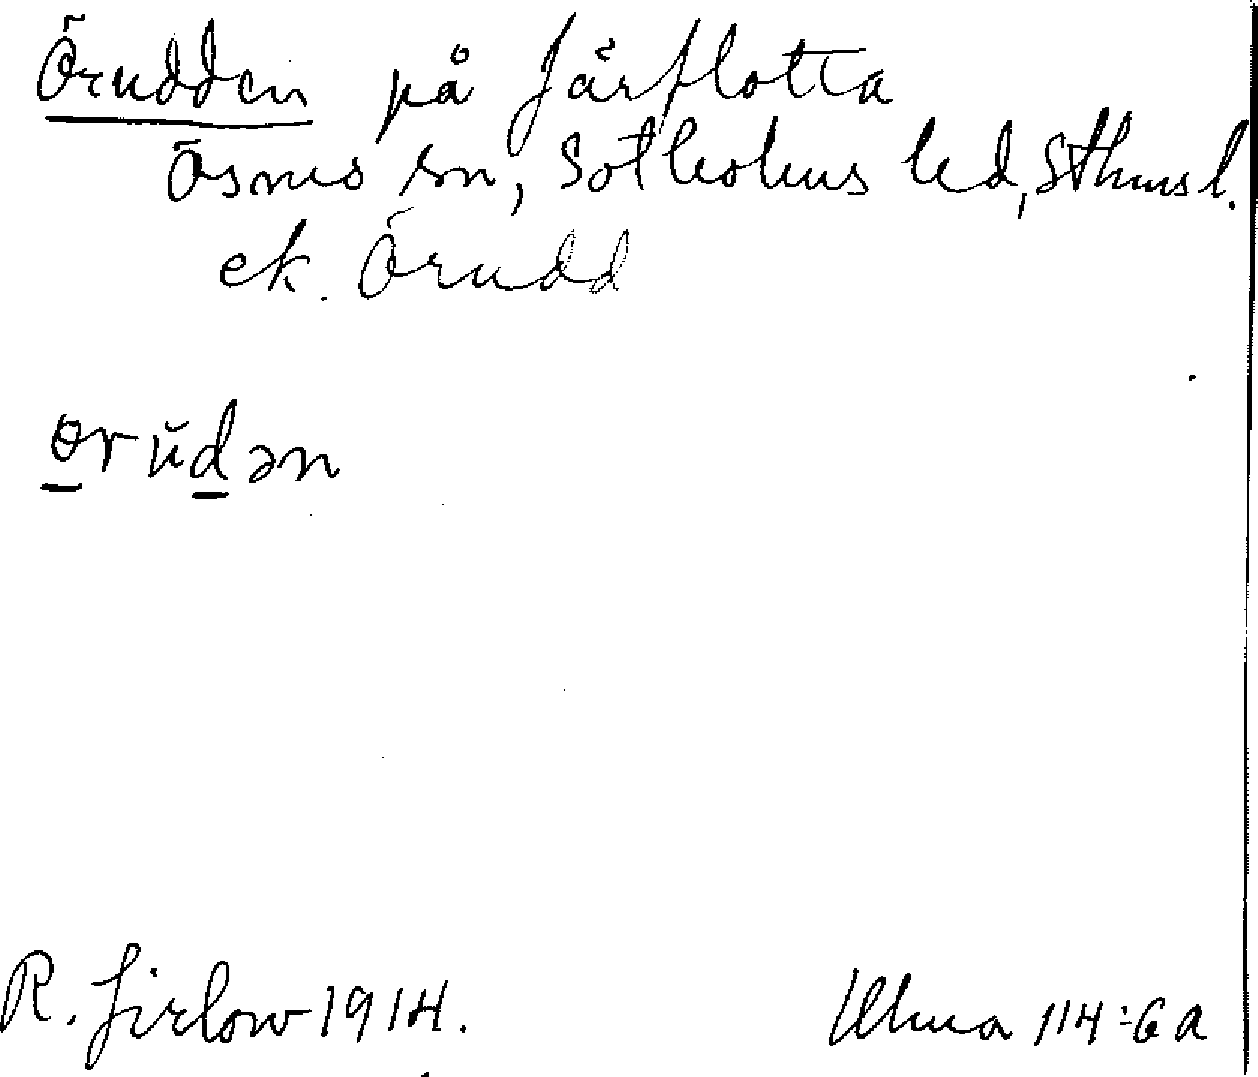 Örudden på Järflotta
Ösmo sn, Sotholms hd, Sthms l.
ek. Örudd
ɵrŭdən
R. Jirlow 1914.
Ulma 114:6a